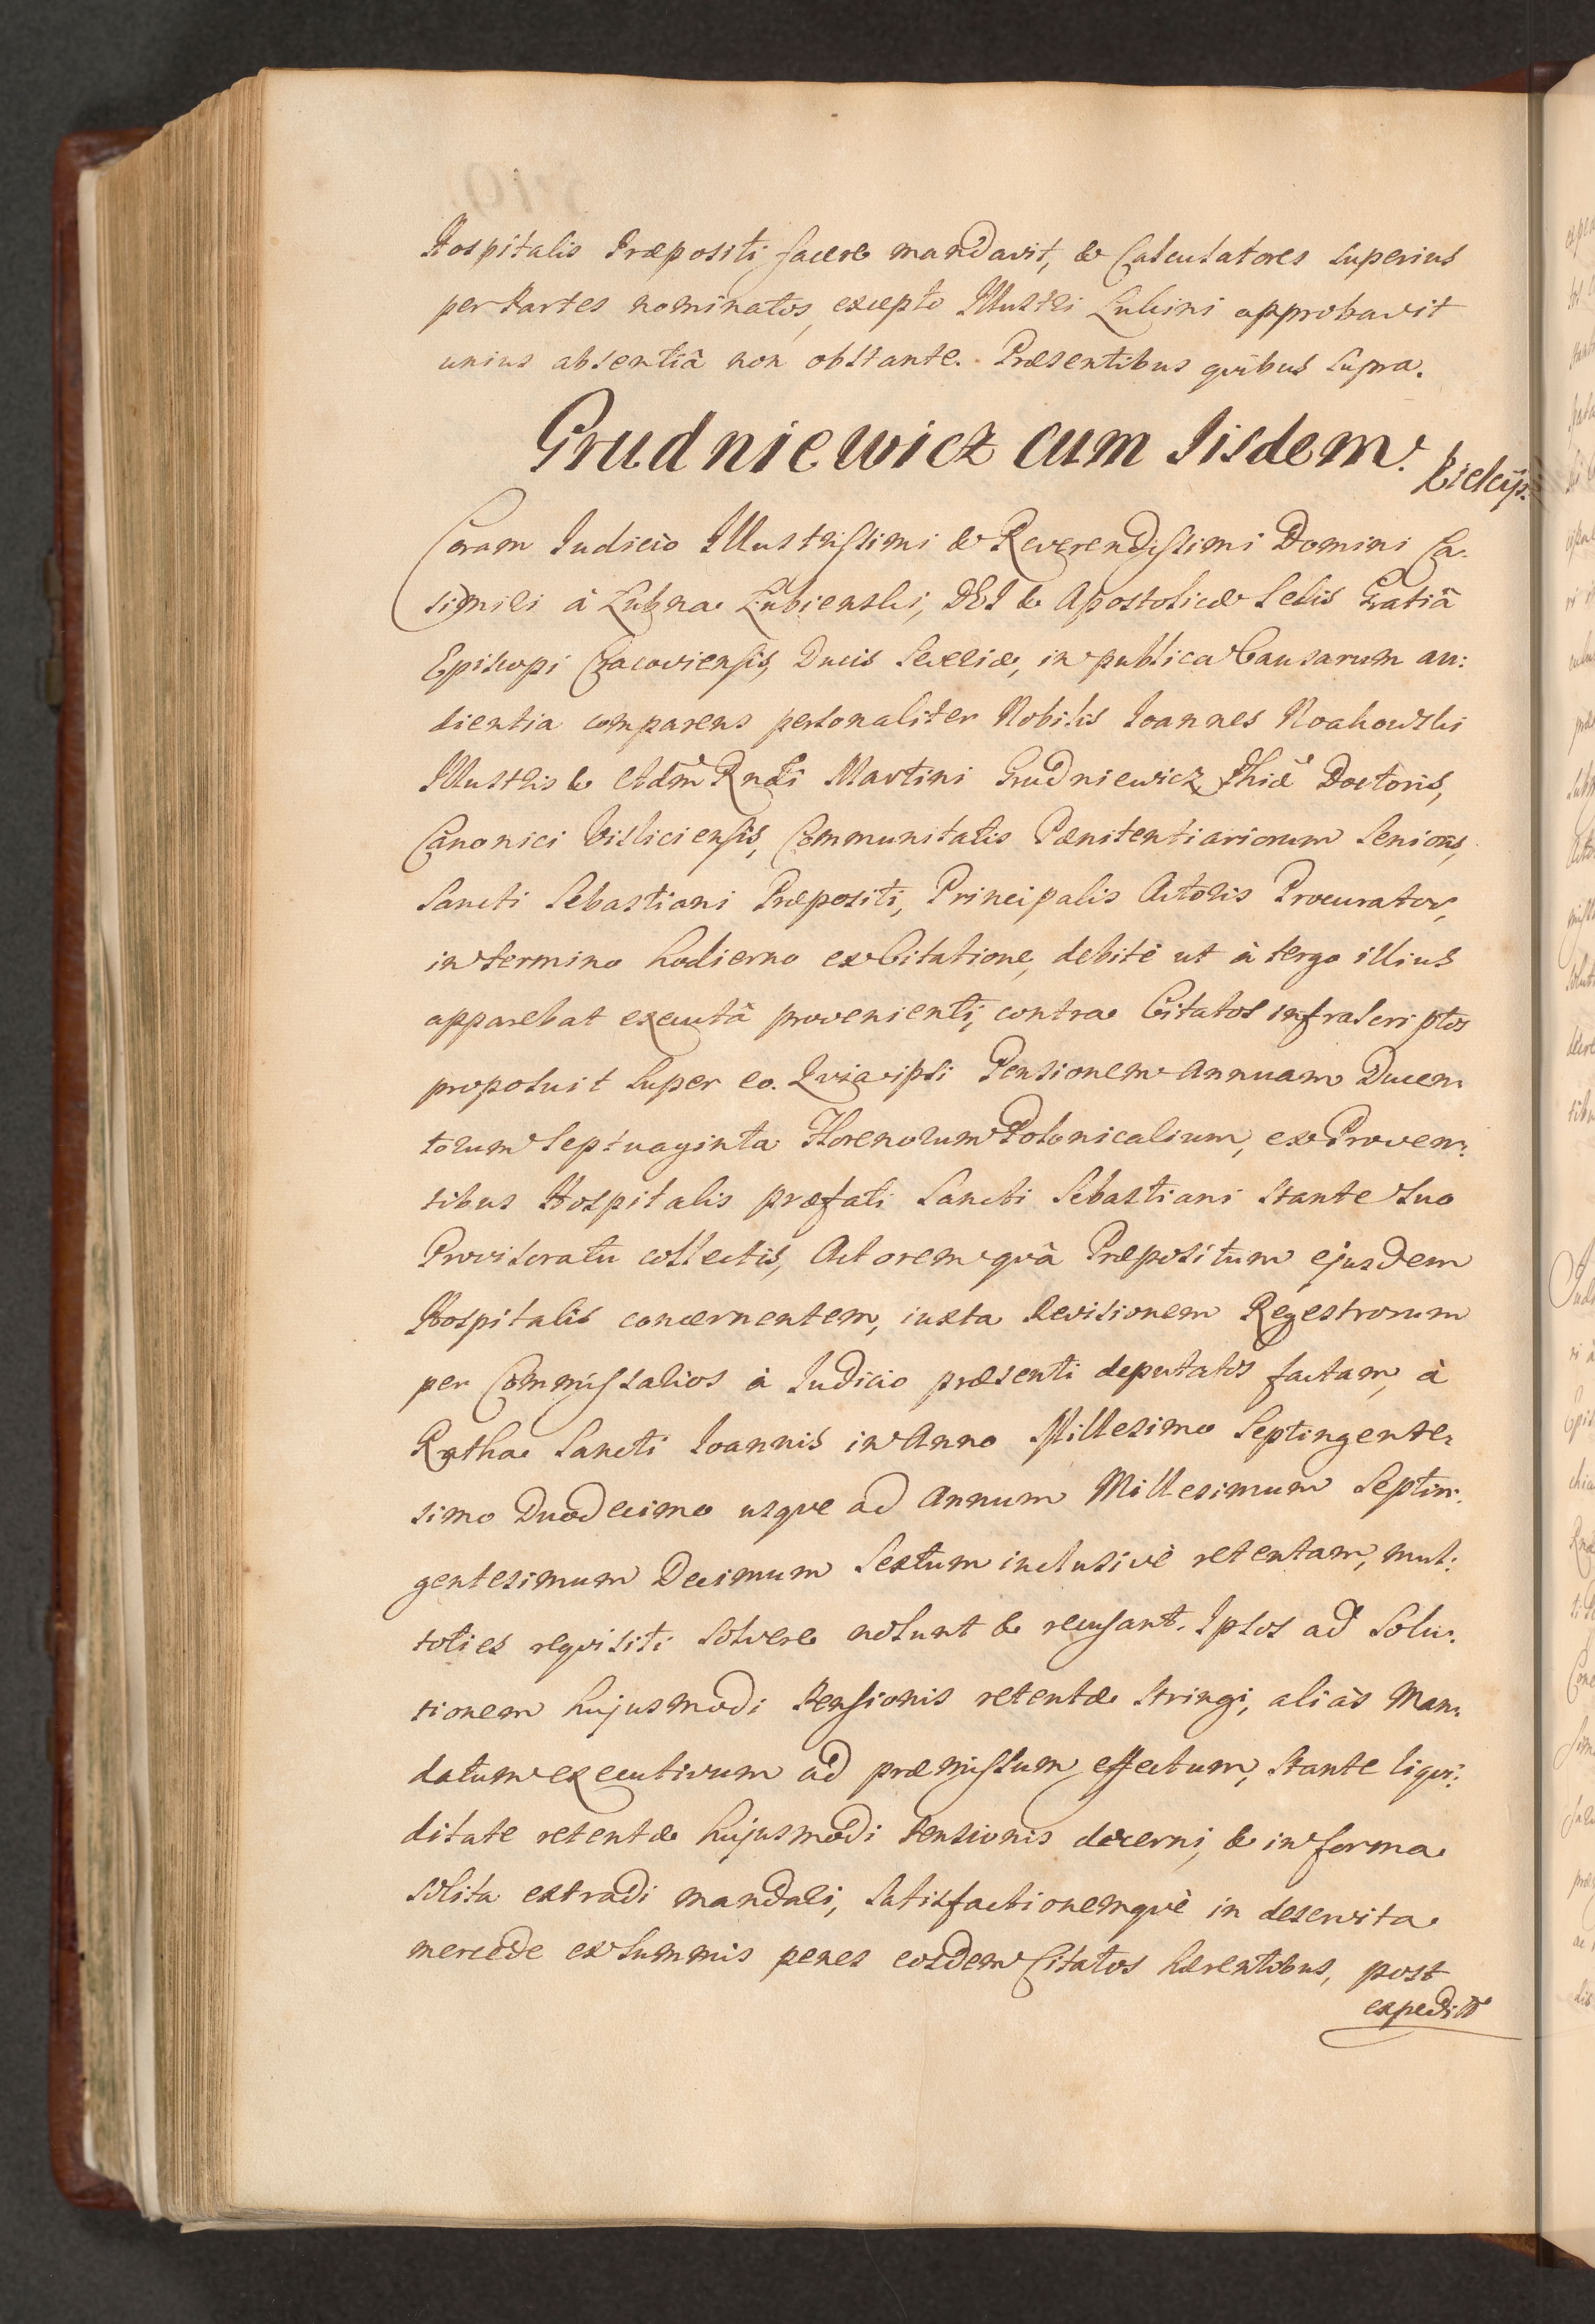 Hospitalis Præpositi facere mandavit, & Calculatores superius
per Partes nominatos, excepto Illustri Lubini approbavit
unius absentiâ non obstante. Præsentibus quibus supra.
Grudniewicz cum Iisdem.
Kielcij.
Coram Iudicio Illustrissimi & Reverendissimi Domini Ca-
simiri à Łubna Łubienski, DEI & Apostolicæ Sedis Gratiâ
Episcopi Cracoviensis, Ducis Severiæ, in publica Causarum au:
dientia comparens personaliter Nobilis Ioannes Noakowski
Illustris & Adm Rndi Martini Grudniewicz Phiæ Doctoris,
Canonici Visliciensis, Communitatis Pænitentiariorum Senioris,
Sancti Sebastiani Præpositi, Principalis Actoris Procurator,
in termino hodierno ex Citatione, debitè ut à tergo illius
apparebat executâ provenienti, contra Citatos infrascriptos
proposuit super eo. Quia ipsi Pensionem Annuam Ducen:
torum Septuaginta Florenorum Polonicalium, ex Proven:
tibus Hospitalis præfati Sancti Sebastiani stante suo
Provisoratu collectis, Actorem quâ Præpositum ejusdem
Hospitalis concernentem, iuxta Revisionem Regestrorum
per Commissarios à Iudicio præsenti deputatos factam, à
Ratha Sancti Ioannis in Anno Millesimo Septingente:
simo Duodecimo usque ad Annum Millesimum Septin:
gentesimum Decimum Sextum inclusivè retentam, mul:
toties requisiti solvere nolunt & recusant. Ipsos ad Solu:
tionem hujusmodi Pensionis retentæ stringi, aliàs Man:
datum executivum ad præmissum effectum, stante liqvi:
ditate retentæ hujusmodi Pensionis decerni, & in forma
solita extradi mandari, satisfactionemquè in deservita
mercede ex summis penes eosdem Citatos hærentibus, post